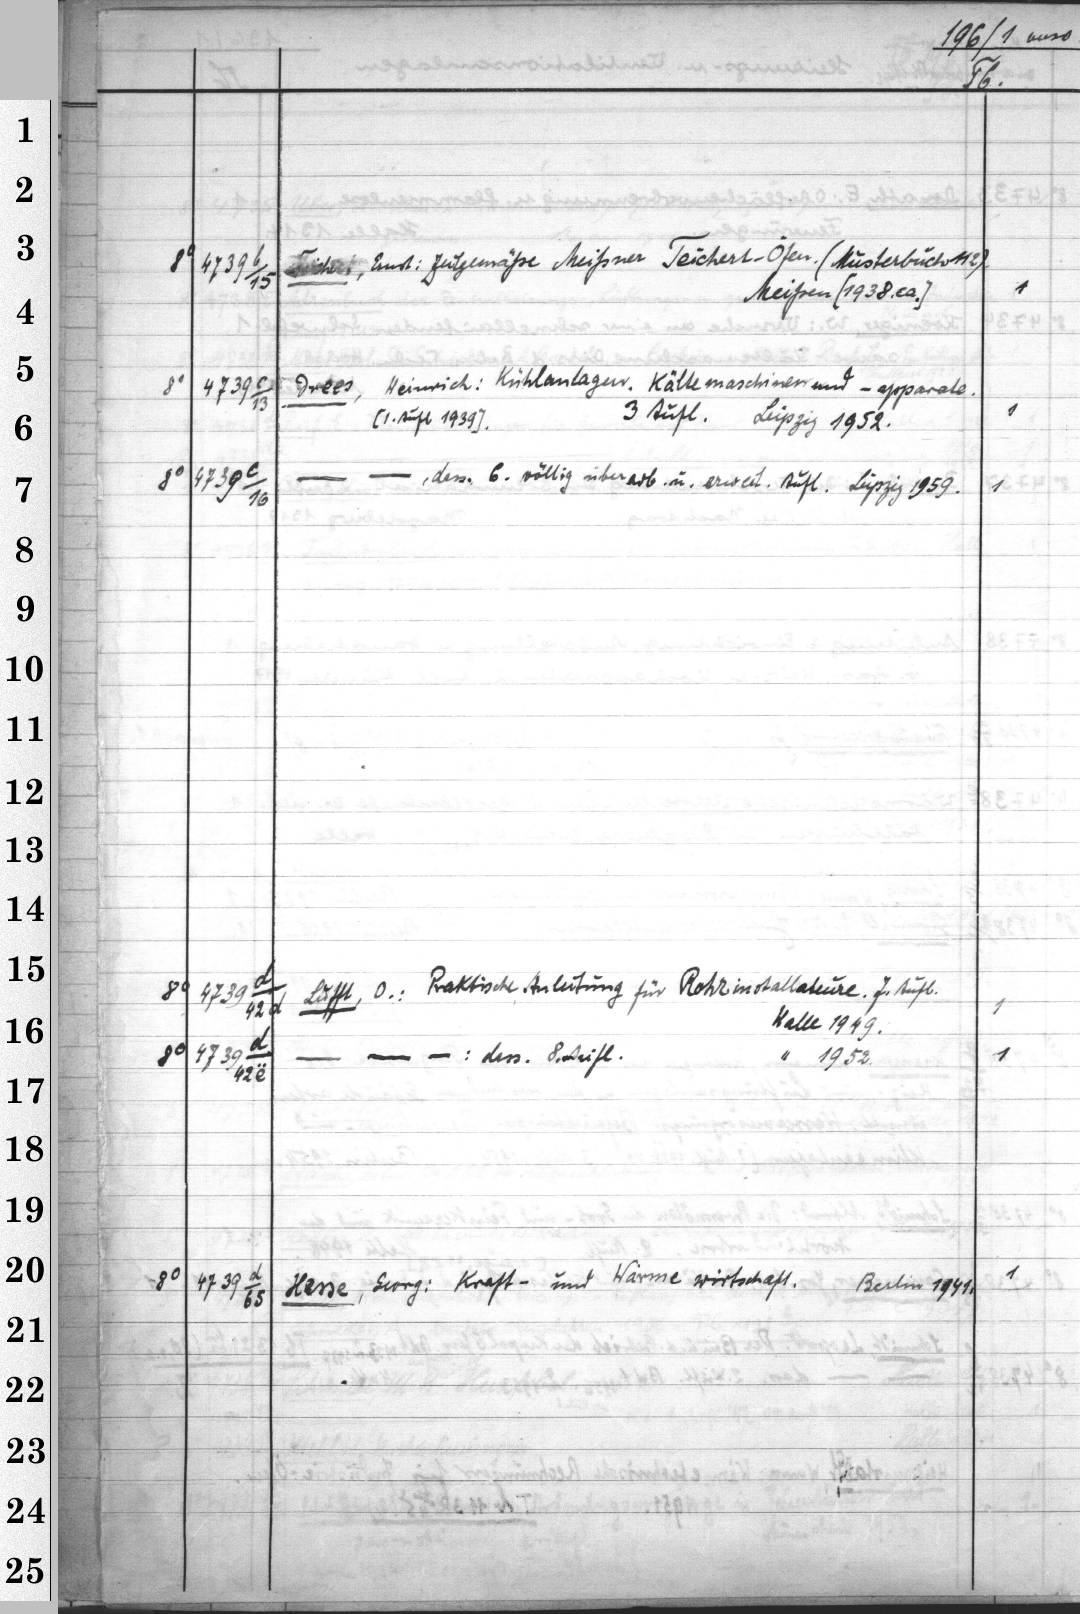 196/1
Tb.
8° 4739 b/15 Teichert, Ernst: Zeitgemäße Meißner Teichert-Öfen. (Musterbuch 112)
Meißen [1938.ca.] 1
8° 4739 c/13 Drees, Heinrich: Kühlanlagen. Kältemaschinen und -apparate.
[1. Aufl 1939]. 3 Aufl. Leipzig 1952. 1
8° 4739 c/16 — — , dass. 6. völlig überarb. u. erweit. Aufl. Leipzig 1959. 1
8° 4739 d/42 d Lufft, O.: Praktische Anleitung für Rohrinstallateure. 7. Aufl.
Halle 1949. 1
8° 4739 d/42 e — — — : dass. 8. Aufl. " 1952. 1
8° 4739 d/65 Hesse, Georg: Kraft- und Wärmewirtschaft. Berlin 1941. 1
1
2
3
4
5
6
7
8
9
10
11
12
13
14
15
16
17
18
19
20
21
22
23
24
25